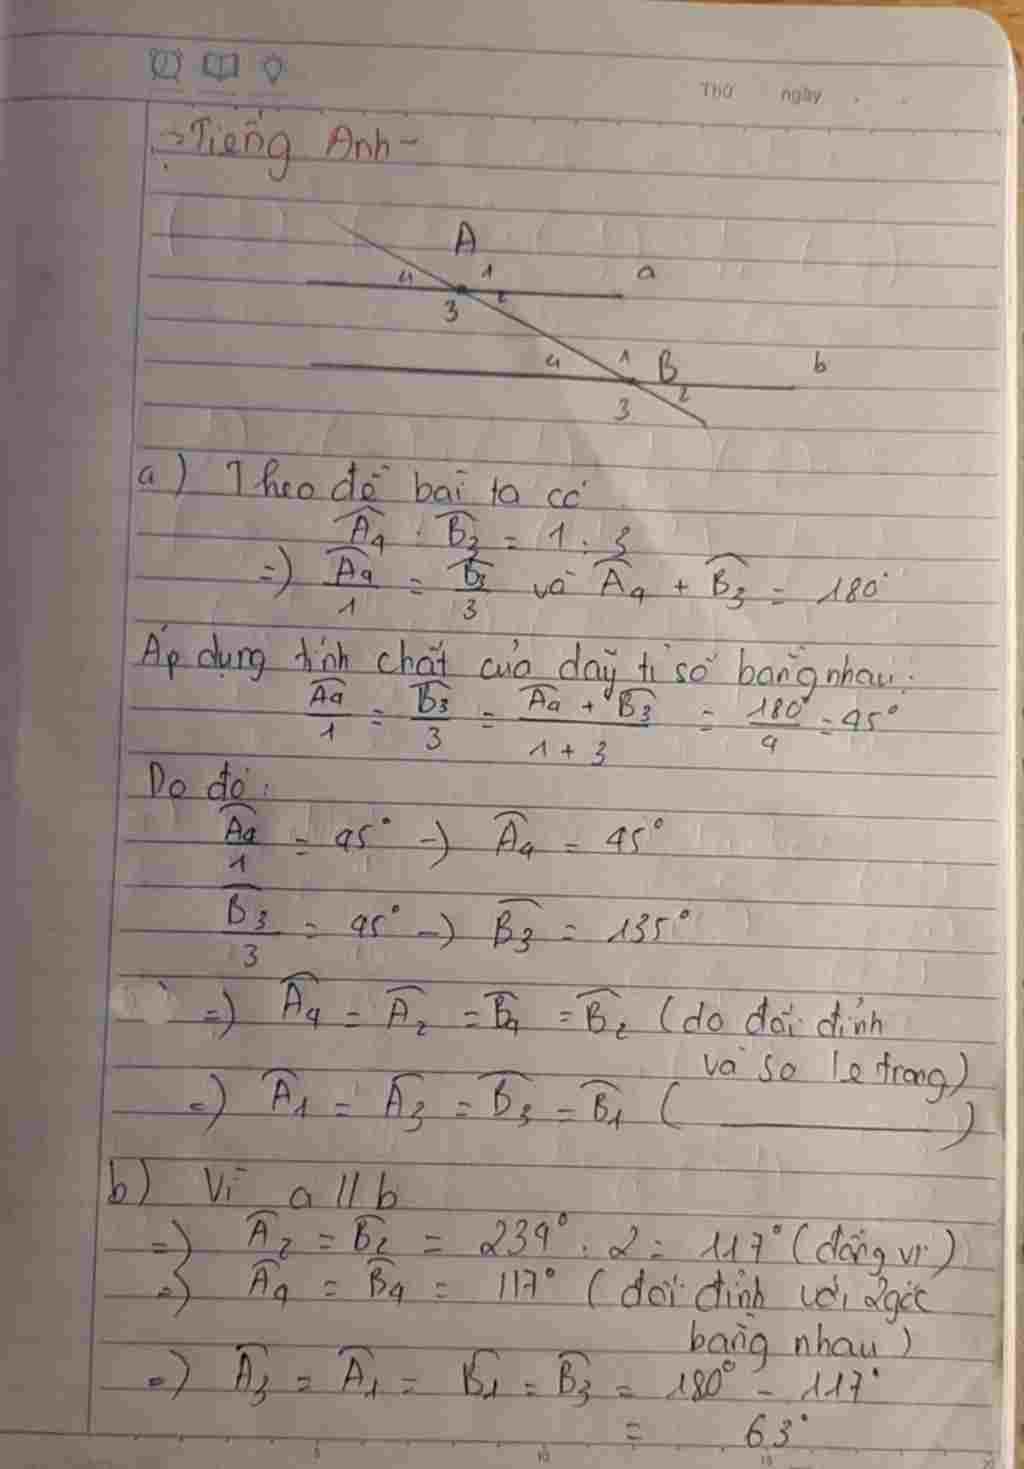 Thứ ngày
Tiếng Anh
A
4 1 a
3 2
4 1 B b
3 2
a) Theo đề bài ta có
A4 : B3 = 1 : 3
=) A4/1 = B3/3 và A4 + B3 = 180°
Áp dụng tính chất của dãy tỉ số bằng nhau:
A4/1 = B3/3 = A4 + B3/1 + 3 = 180°/4 = 45°
Do đó:
A4/1 = 45° -) A4 = 45°
B3/3 = 45° -) B3 = 135°
=) A4 = A2 = B4 = B2 (do đối đỉnh
và so le trong)
=) A1 = A3 = B3 = B1 ( ______ )
b) Vì a // b
=) A2 = B2 = 234° : 2 = 117° (đồng vị)
=) A4 = B4 = 117° (đối đỉnh với 2 góc
bằng nhau)
=) A3 = A1 = B1 = B3 = 180° - 117°
= 63°
5 10 15 20